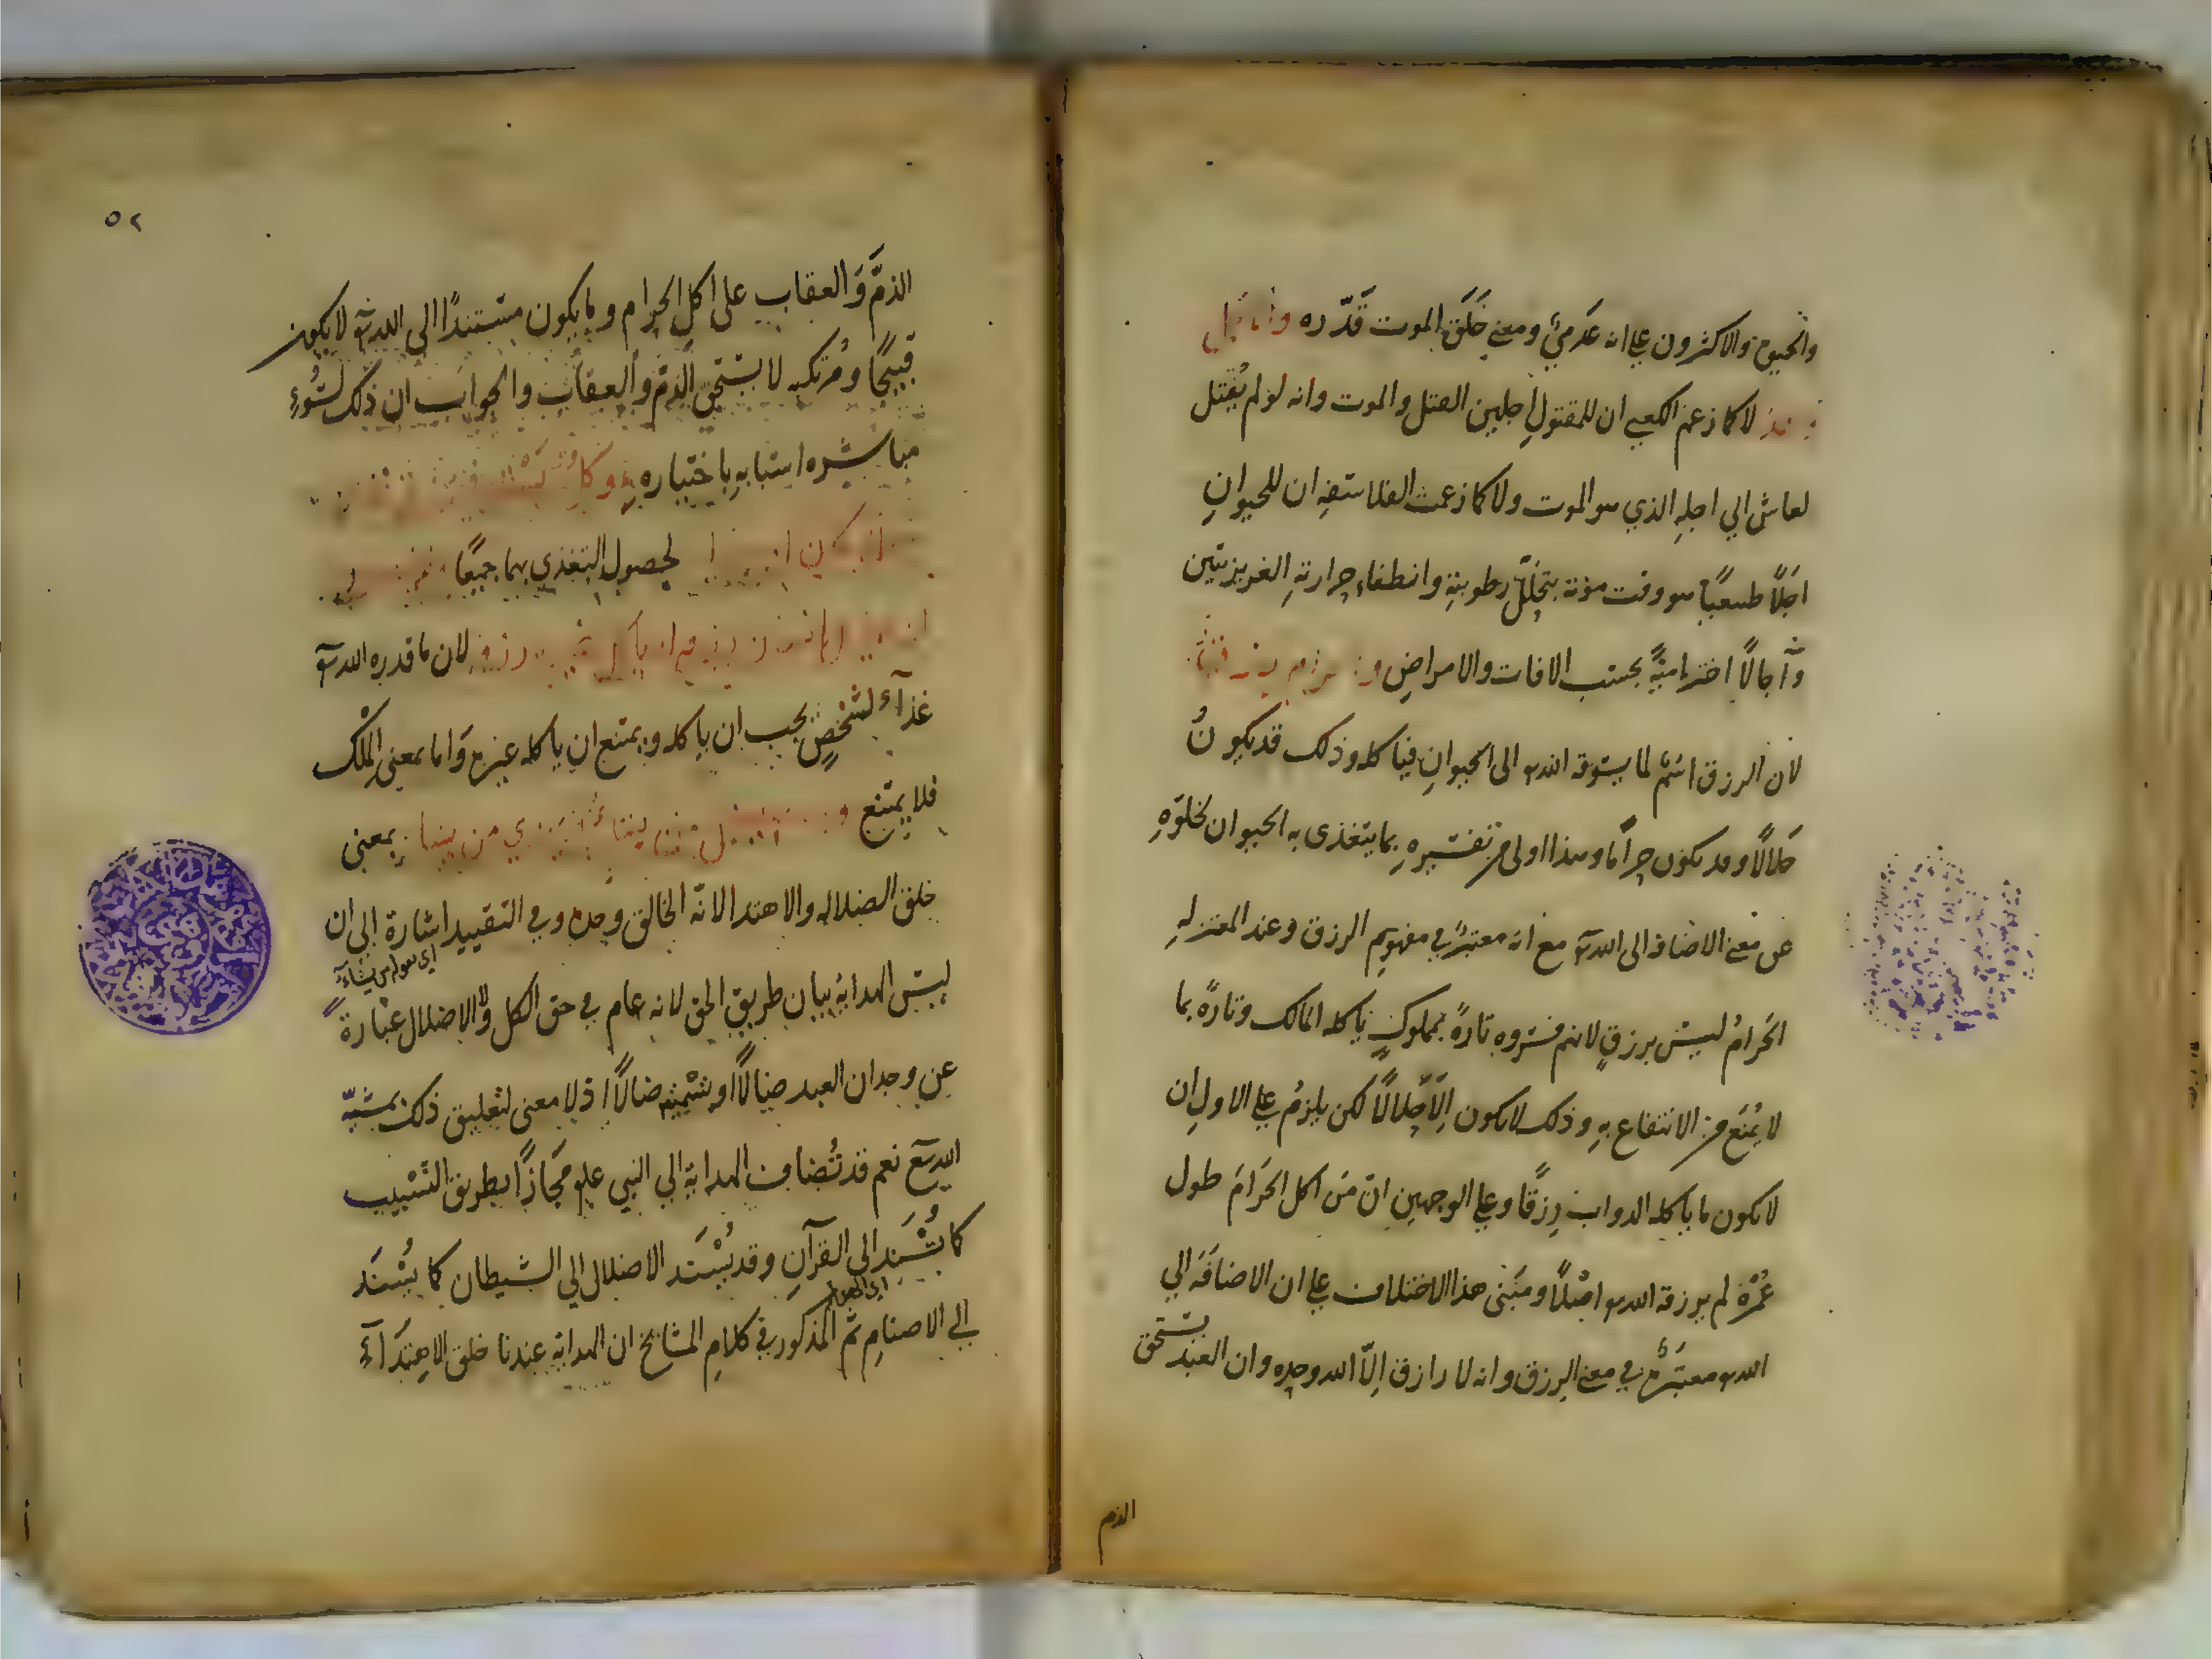 والحيوة والاكثرون على انه عدمىّ ومعنى خَلَقَ الموت قَدّره والاجل
لا كما زعم الكعبى ان للمقتول اجلين القتل والموت وانه لو لم يُقتل
لعاش الى اجلهِ الذي هو الموت ولا كما زعمت الفلاسفه ان للحيوانِ
اجَلاً طبيعيًا هو وقت موته بتحلّل رطوبتهِ وانطفاء حرارتهِ الغريزيتين
وآجالاً اختراميّةً بحسب الافات والامراضِ
لان الرزق اسمٌ لما يسوقه الله الى الحيوانِ فياكله وذلك قد يكونُ
حَلالاً وقد يكون حراماً وهذا اولى من تفسيرهِ بما يتغذى به الحيوان لخلوّهِ
عن معنى الاضافة الى الله تعـ مع انه معتبرٌ في مفهومِ الرزق وعند المعتزلهِ
الحَرامُ ليس برزقٍ لانهم فسّروه تارةً بمملوكٍ ياكله المالك وتارةً بما
لا يُمنَع من الانتفاع بهِ وذلك لا يكون اِلّا حَلالاً لكن يلزمُ على الاولِ ان
لا يكون ما ياكله الدواب رِزقًا وعلى الوجهين انّ مَن اكل الحَرامَ طول
عُمُرهِ لم يرزقه الله اصْلاً ومَبنى هذا الاختلاف على ان الاضافَه الي
الله معتبَرةٌ في معنى الرزق وانه لا رازق اِلّا الله وحده وان العبد يستحق
الذم
٥٢
الذمَّ وَالعقاب على اكلِ الحرام وما يكون مستندًا الى الله تعـ لا يكون
قبيحًا ومُرتكبه لا يستحق الذمّ والعقاب والجواب ان ذلك لسُوءِ
مباشره اسبابهِ باختياره وكل
لحصول التغذي بهما جميعًا
ان ياكل رزقه لان ما قدره الله تعـ
غذآءً لشخصٍ يجب ان ياكله ويمتنع ان ياكله غيره وَاما بمعنى المِلْك
فلا يمتنع من يشاء ويهدي من يشاء بمعنى
خلق الضلاله والاهتدا لانه الخالق وحده وفي التقييد اشارة الى ان
ليس الهداية بيان طريق الحق لانه عام في حق الكل ولا الاضلال عبارةً
عن وجدان العبد ضالاً او تسْميته ضالاً اذ لا معنى لتعليق ذلك بمشيّه
الله تعـ نعم قد تُضاف الهداية الى النبي علم مَجَازًا بطريق التسْبيب
كما تُسْنَد الى القرآن وقد يُسْنَد الاضلال الي الشيطان كما يُسْنَد
الى الاصنامِ ثم المذكور في كلام المشايخ ان الهدايه عندنا خلق الاهتدَآء